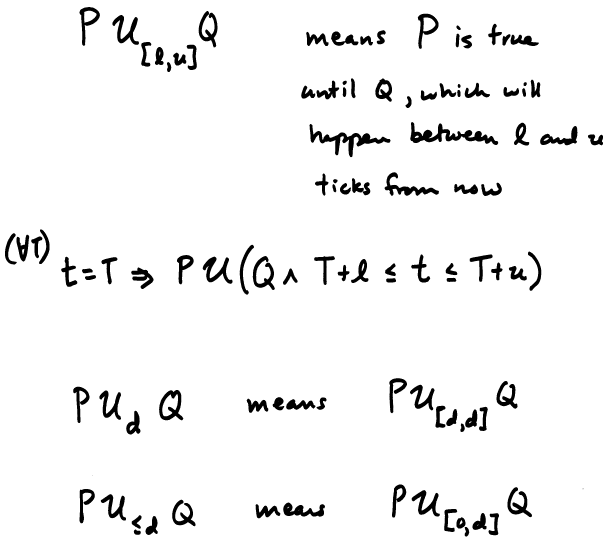 P U[l,u] Q means P is true
until Q, which will
happen between l and u
ticks from now
(∀T) t=T ⇒ P U(Q ∧ T+l ≤ t ≤ T+u)
P U_d Q means P U[d,d] Q
P U≤d Q means P U[0,d] Q